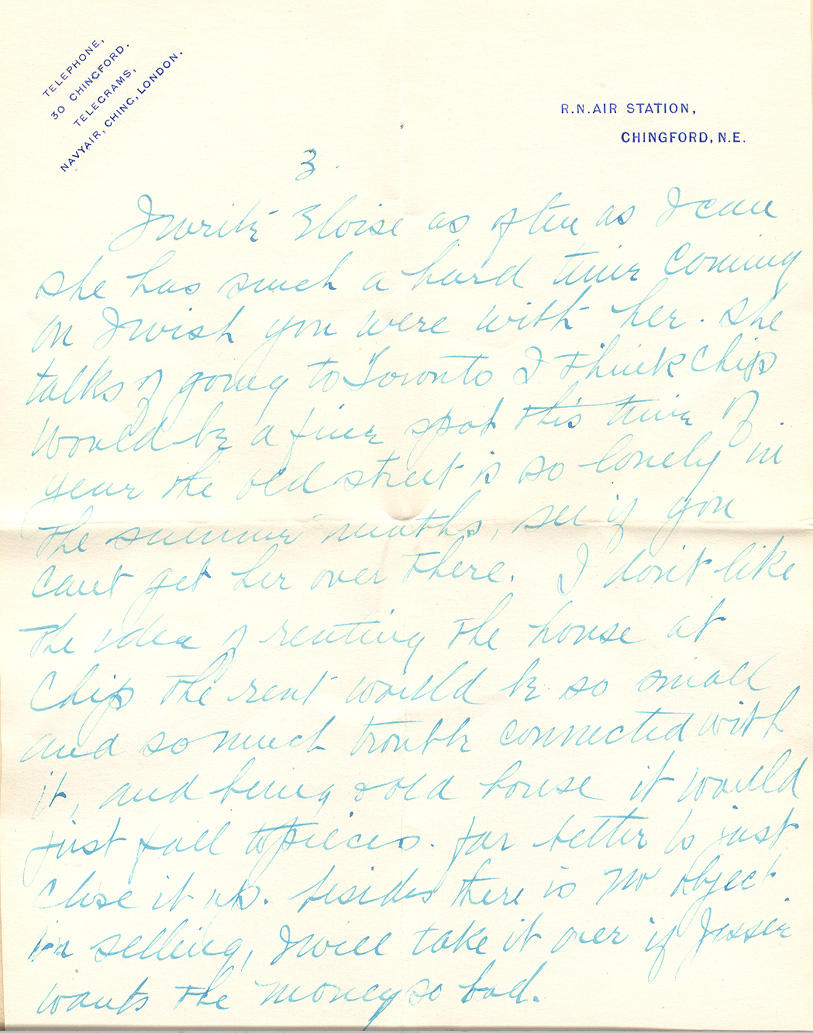 TELEPHONE,
30 CHINGFORD.
TELEGRAMS,
NAVYAIR, CHING, LONDON.
R.N. AIR STATION,
CHINGFORD, N.E.
3.
I write Eloise as often as I can
she has such a hard time coming
on I wish you were with her. She
talks of going to Toronto I think Chip
would be a fine spot this time of
year the old street is so lonely in
the summer months, see if you
cant get her over there. I don't like
the idea of renting the house at
Chip the rent would be so small
and so much trouble connected with
it, and being old house it would
just fall to pieces. far better to just
close it up. besides there is no object
in selling, I will take it over if Jessie
wants the money so bad.